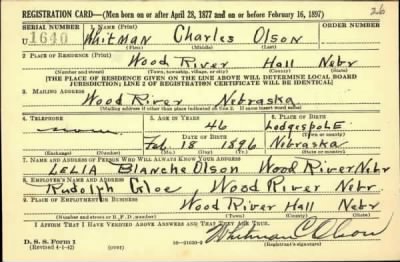 REGISTRATION CARD—(Men born on or after April 28, 1877 and on or before February 16, 1897)
26
SERIAL NUMBER 1. NAME (Print) ORDER NUMBER
U 1640 Whitman Charles Olson
(First) (Middle) (Last)
2. PLACE OF RESIDENCE (Print)
Wood River Hall Nebr
(Number and street) (Town, township, village, or city) (County) (State)
[THE PLACE OF RESIDENCE GIVEN ON THE LINE ABOVE WILL DETERMINE LOCAL BOARD
JURISDICTION; LINE 2 OF REGISTRATION CERTIFICATE WILL BE IDENTICAL]
3. MAILING ADDRESS
Wood River Nebraska
(Mailing address if other than place indicated on line 2. If same insert word same)
4. TELEPHONE 5. AGE IN YEARS 6. PLACE OF BIRTH
none 46 Lodgepole
DATE OF BIRTH (Town or county)
Feb 18 1896 Nebraska
(Exchange) (Number) (Mo.) (Day) (Yr.) (State or country)
7. NAME AND ADDRESS OF PERSON WHO WILL ALWAYS KNOW YOUR ADDRESS
Lelia Blanche Olson Wood River Nebr
8. EMPLOYER'S NAME AND ADDRESS
Rudolph Gloe, Wood River Nebr
9. PLACE OF EMPLOYMENT OR BUSINESS
Wood River Hall Nebr
(Number and street or R. F. D. number) (Town) (County) (State)
I AFFIRM THAT I HAVE VERIFIED ABOVE ANSWERS AND THAT THEY ARE TRUE.
Whitman C Olson
D. S. S. Form 1
(Revised 4-1-42) (over) 16—21630-2 (Registrant's signature)